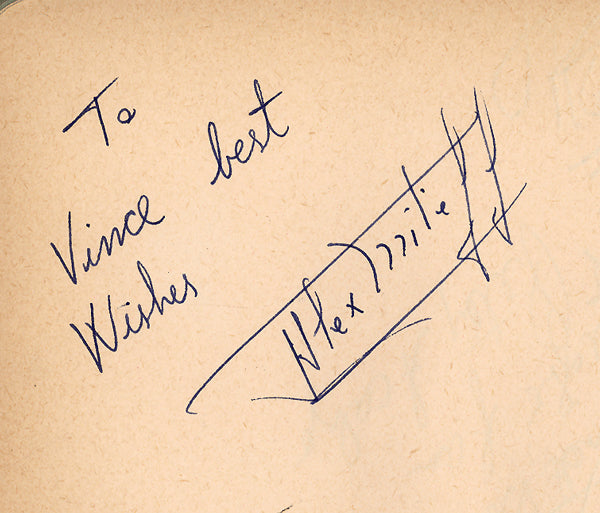 To
Vince best
Wishes
Alex Miteff